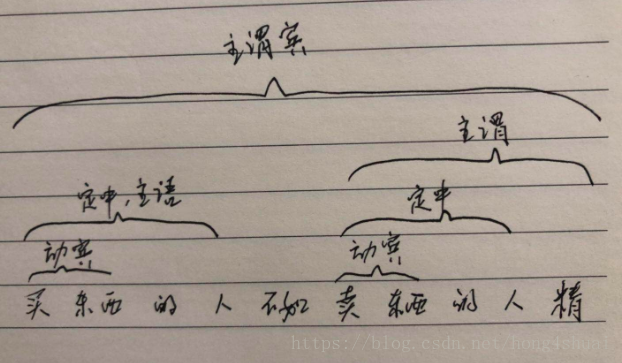 主谓宾
主谓
定中,主语 定中
动宾 动宾
买 东西 的 人 不如 卖 东西 的 人 精
https://blog.csdn.net/hong4shui